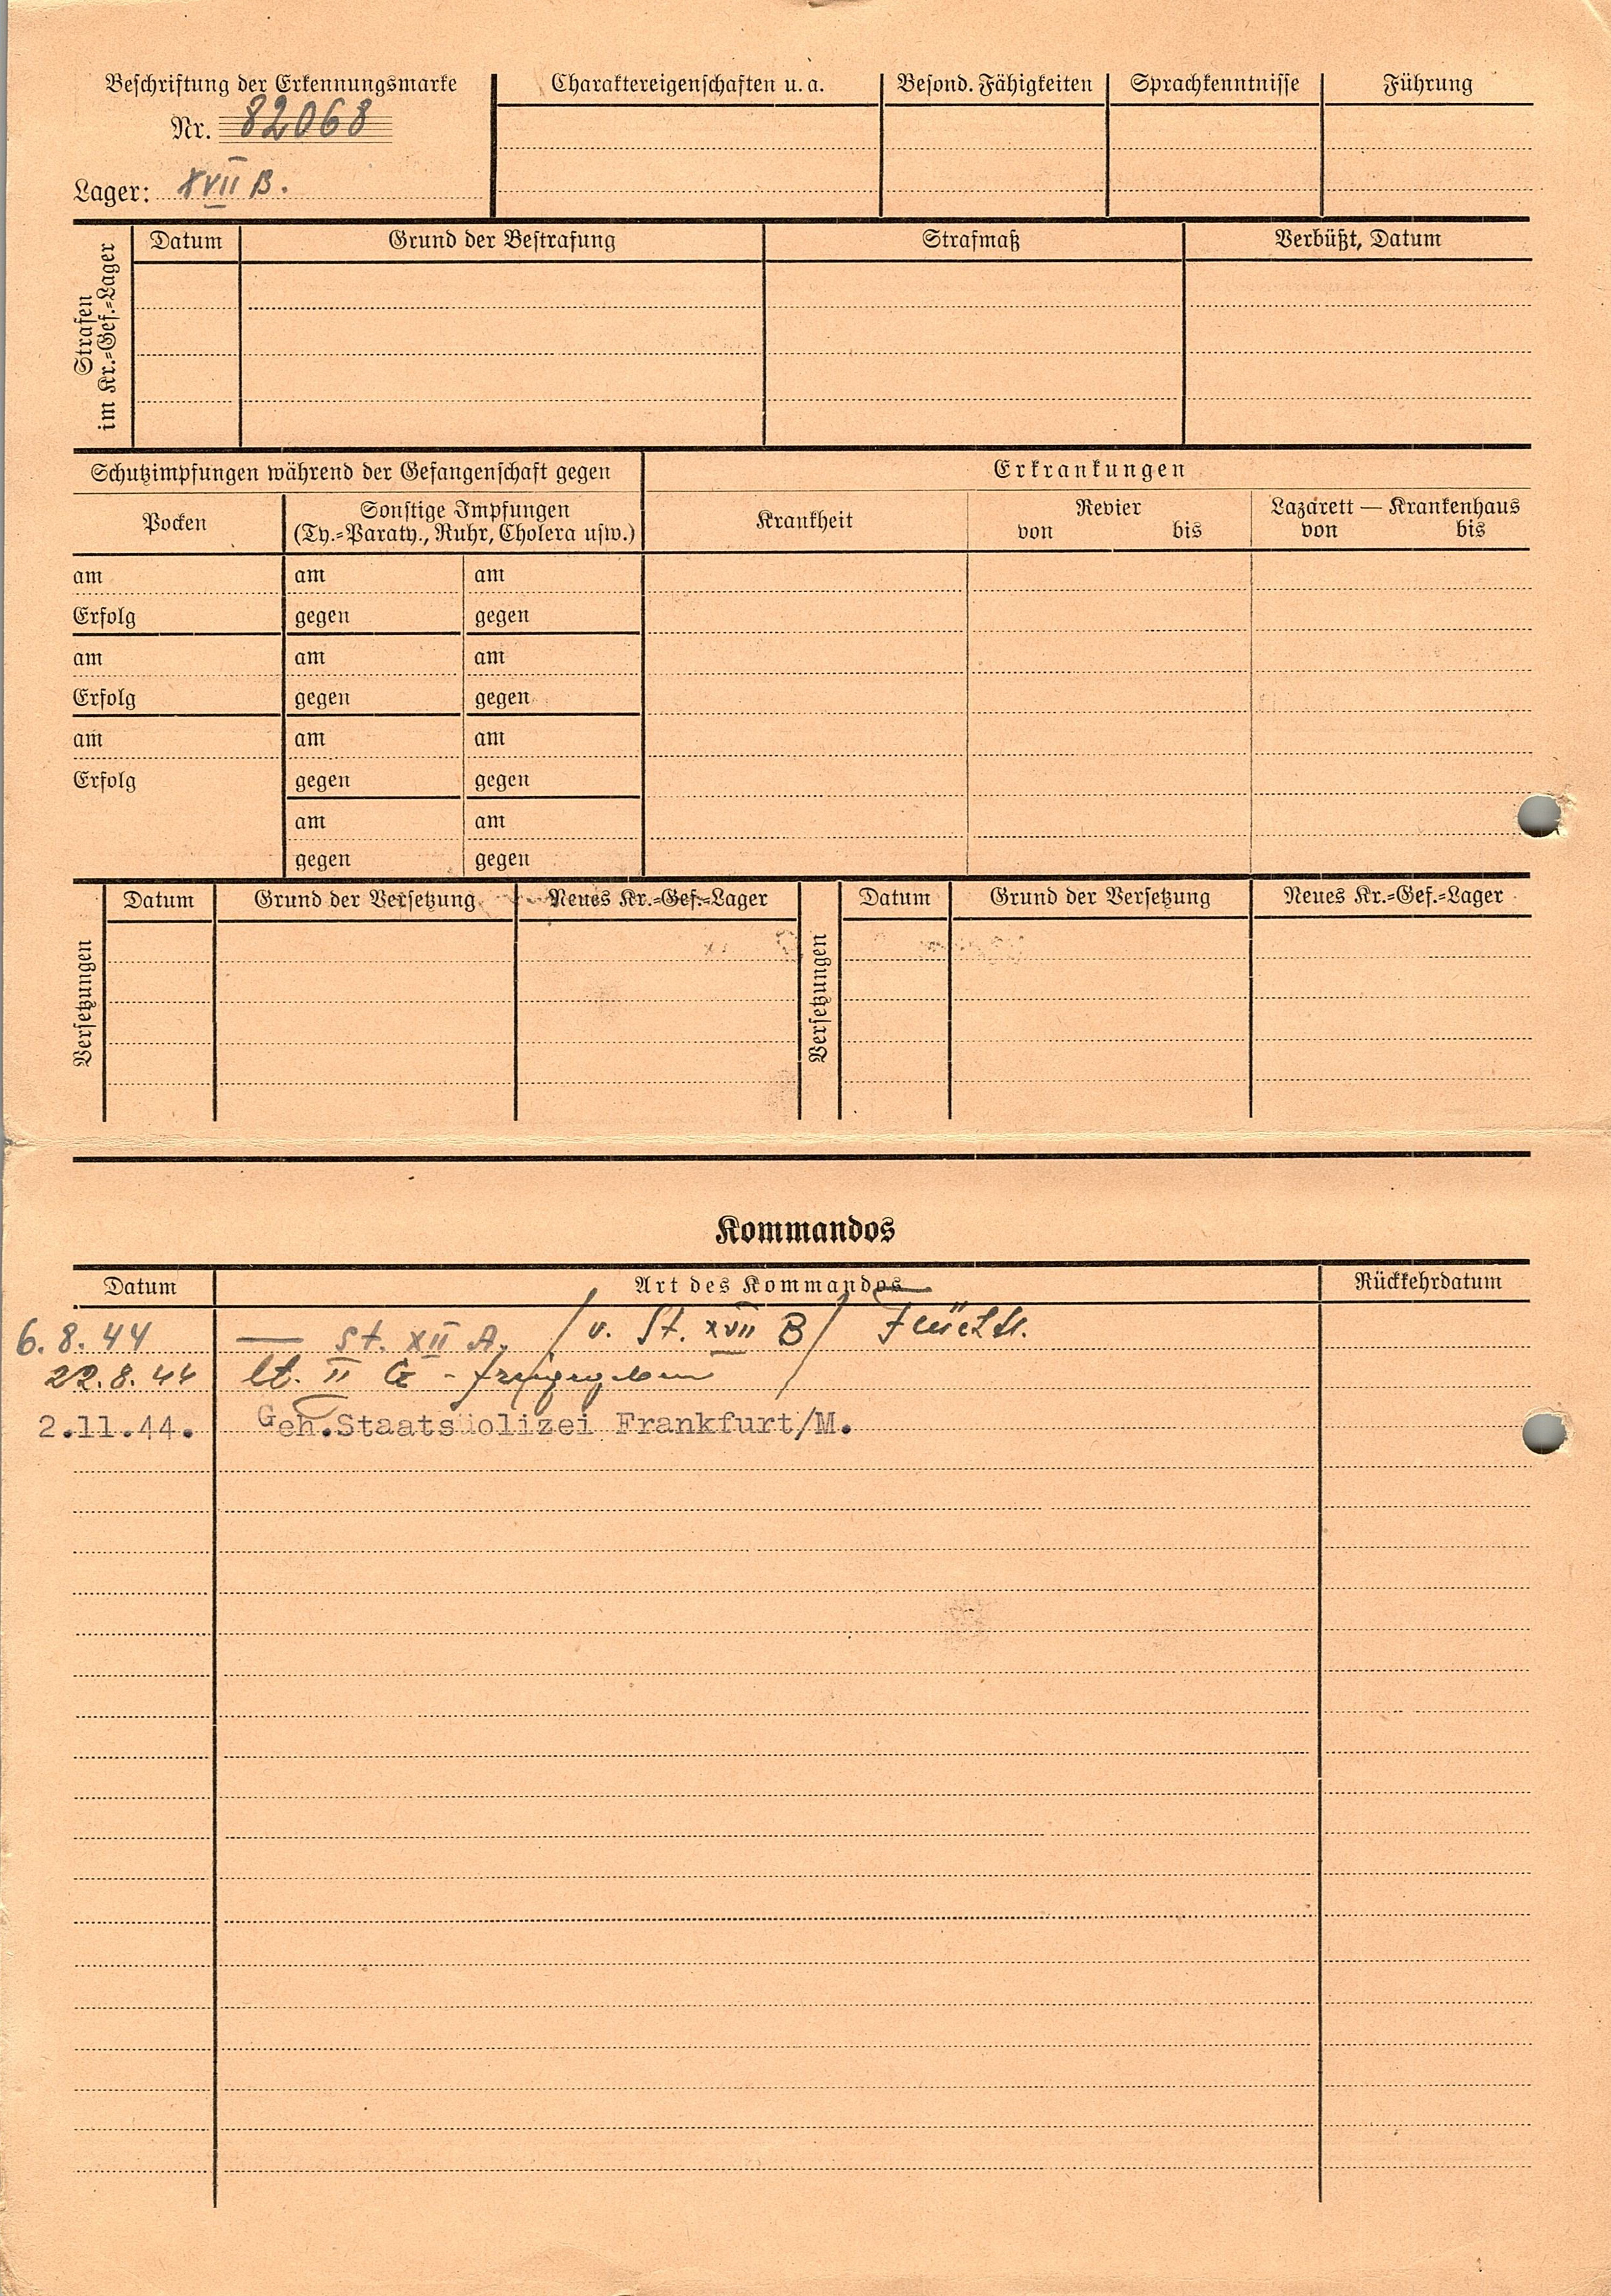 Beschriftung der Erkennungsmarke
Nr. 82068
Lager: XVII B.
Charaktereigenschaften u. a.
Besond. Fähigkeiten
Sprachkenntnisse
Führung
Strafen
im Kr.=Gef.=Lager
Datum
Grund der Bestrafung
Strafmaß
Verbüßt, Datum
Schutzimpfungen während der Gefangenschaft gegen
Erkrankungen
Pocken
Sonstige Impfungen
(Ty.=Paraty., Ruhr, Cholera usw.)
Krankheit
Revier
von bis
Lazarett — Krankenhaus
von bis
am am am
Erfolg gegen gegen
am am am
Erfolg gegen gegen
am am am
Erfolg gegen gegen
am am
gegen gegen
Versetzungen
Datum Grund der Versetzung Neues Kr.=Gef.=Lager
Versetzungen
Datum Grund der Versetzung Neues Kr.=Gef.=Lager
Kommandos
Datum Art des Kommandos Rückkehrdatum
6.8.44 — St. XII A. /v. St. XVII B/
22.8.44 lt. II G - freigegeben /
2.11.44. Geh.Staatspolizei Frankfurt/M.